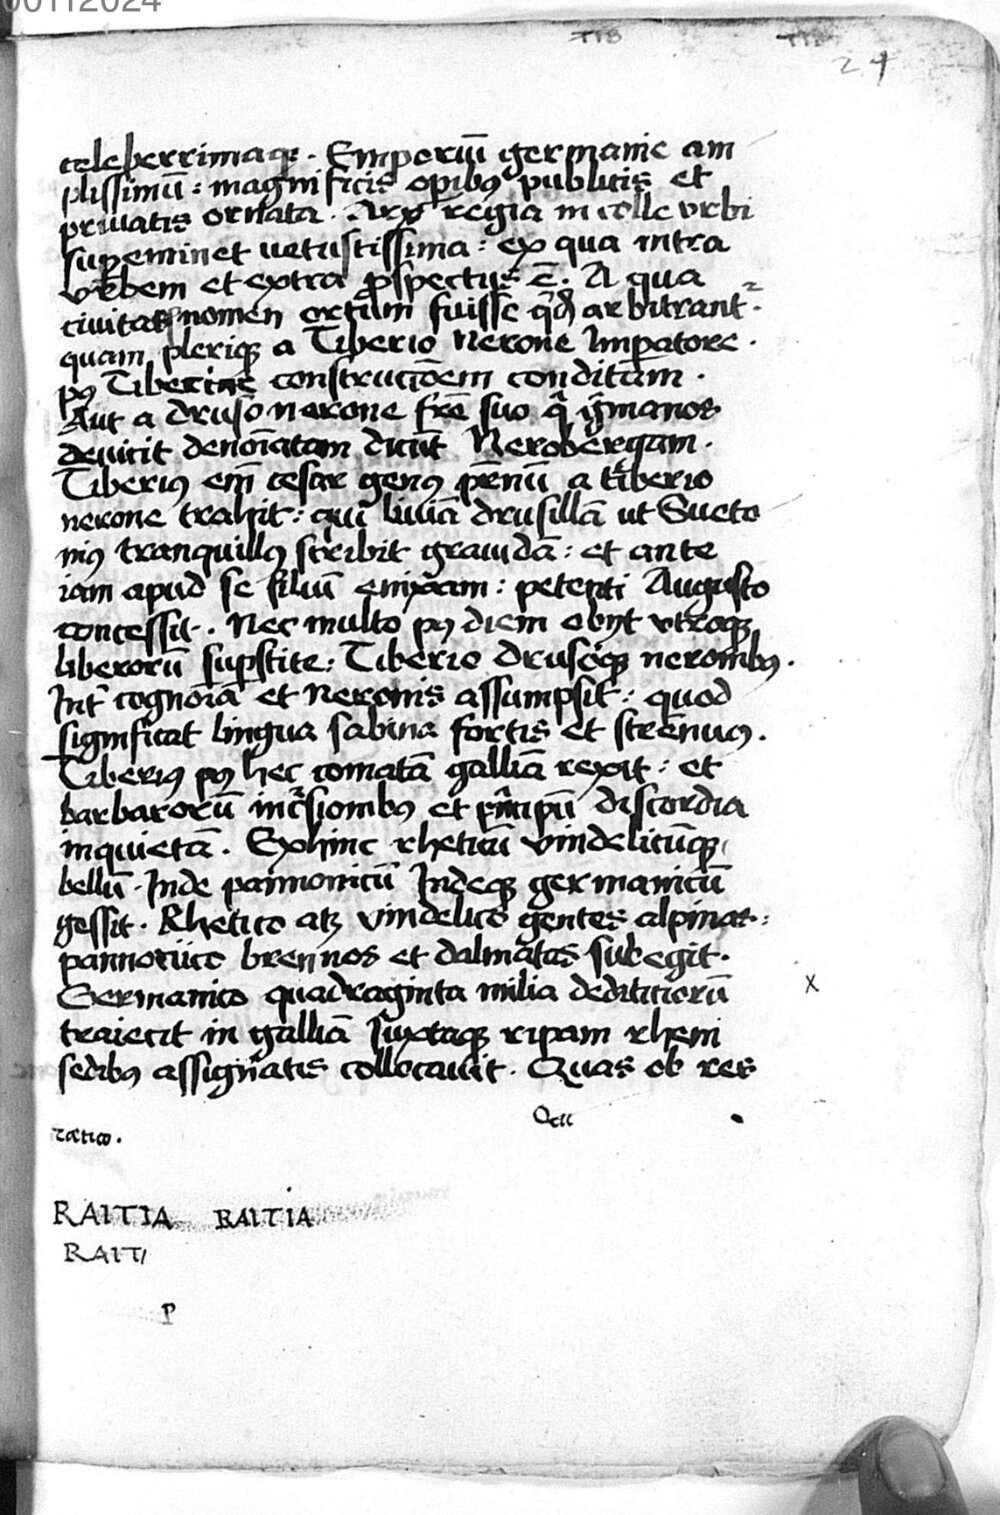 00112024
24
celeberrimaqꝫ. Emporiū germanie am
plissimū: magnificis opibꝯ publicis et
priuatis ornata. Arx regia in colle vrbi
suꝑeminet uetustissima: ex qua intra
vrbem et extra ꝓspectus ē. A qua
ciuitatis nomen ortum fuisse qd̄ arbitrant᷑.
quam pleriqꝫ a Tiberio Nerone Imꝑatore.
pꝯ Tiberine constructiōem conditam.
Aut a druso nerone fr̄e suo q̄ gͥmanos
deuicit denoīatam dicūt Nerobergam.
Tiberiꝯ em̄ cesar genꝯ pr̄nū a tiberio
nerone trahit: qui liuiā drusillā ut Sueto
niꝯ tranquillꝯ scribit grauidā: et ante
iam apud se filiū enixam: petenti Augusto
concessit. Nec multo pꝯ diem obijt vtroqꝫ
liberorū suꝑstite: Tiberio drusoqꝫ neronibꝯ.
Int᷑ cognoīa et Neronis assumpsit: quod
significat lingua sabina fortis et strēnuꝯ.
Tiberiꝯ pꝯ hec comatā galliā rexit: et
barbarorū incͥsionibꝯ et pͥncipū discordia
inquietā. Exhinc rheticū vindelicūqꝫ
bellū. Inde pannonicū Indeqꝫ germanicū
gessit. Rhetico atqꝫ vindelico gentes alpinas:
pannonico brennos et dalmatas subegit.
Germanico quadraginta milia dediticiorū
x
traiecit in galliā iuxtaqꝫ ripam rheni
sedibꝯ assignatis collocauit. Quas ob res
raetico.
RAITIA RAITIA
RAITI
P